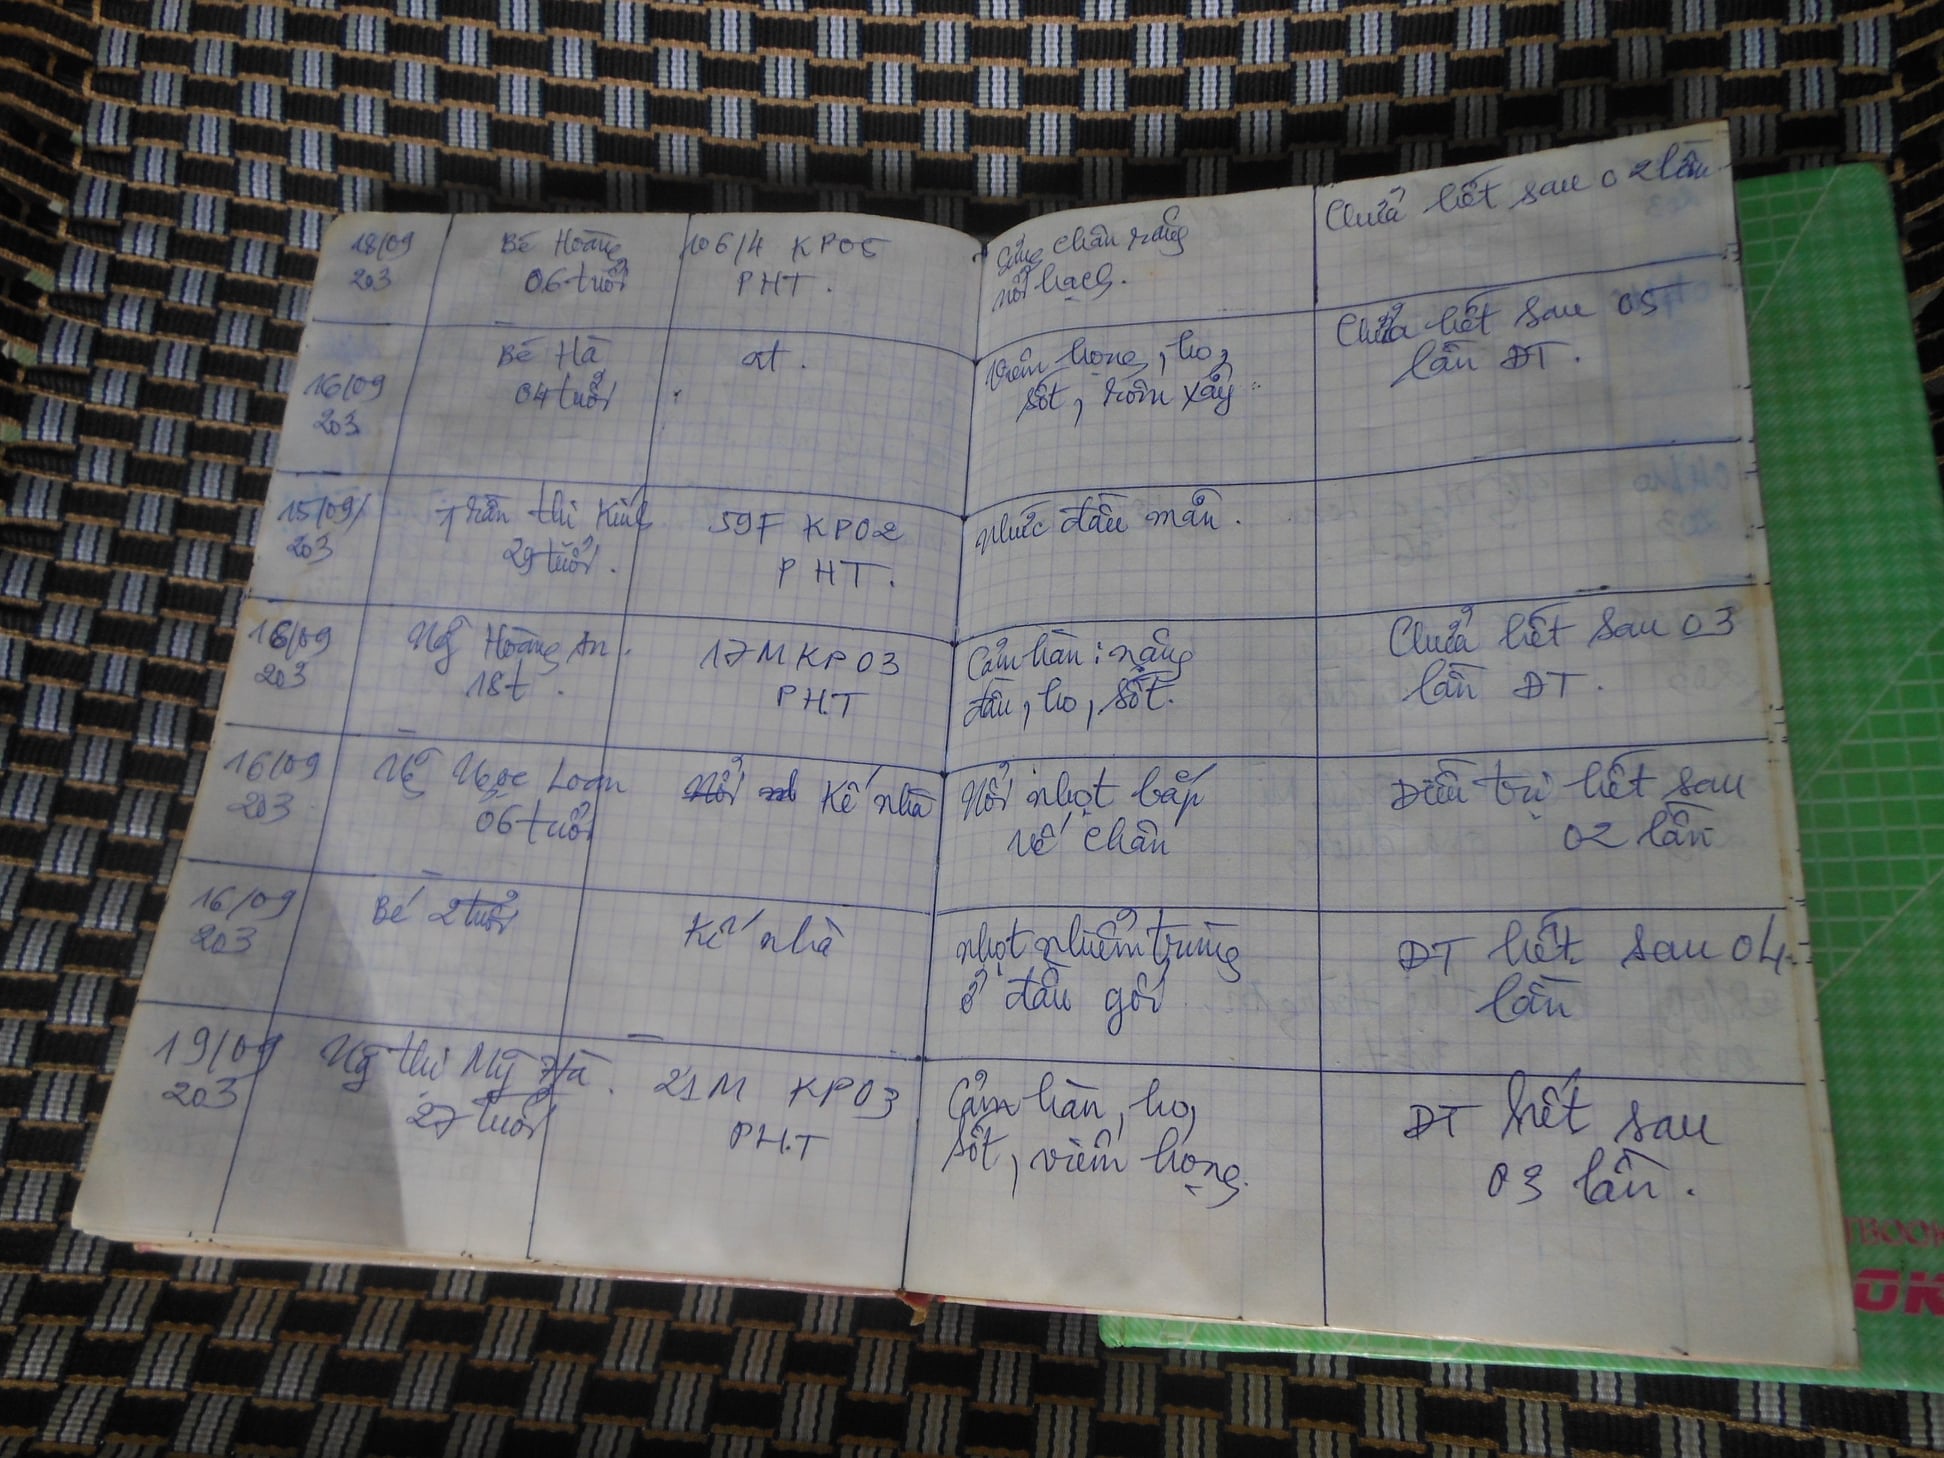 18/09
203
Bé Hoàng
06 tuổi
106/4 KP05
PHT.
Sưng chân răng
nổi hạch.
Chữa hết sau 02 lần
16/09
203
Bé Hà
04 tuổi
nt.
Viêm họng, ho,
sốt, rôm xảy
Chữa hết sau 05
lần ĐT.
15/09/
203
Trần thị Kính
29 tuổi.
59F KP02
PHT.
Nhức đầu mãn.
16/09
203
Ng Hoàng An.
18t.
17M KP03
PH.T
Cảm hàn: nặng
đầu, ho, sốt.
Chữa hết sau 03
lần ĐT.
16/09
203
Ng Ngọc Loan
06 tuổi
Kế nhà
Nổi nhọt bắp
vế chân
Điều trị hết sau
02 lần
16/09
203
Bé 2 tuổi
Kế nhà
nhọt nhiểm trùng
ở đầu gối
ĐT hết sau 04
lần
19/09
203
Ng thị Mỹ Hà.
27 tuổi
21M KP03
PH.T
Cảm hàn, ho,
sốt, viêm họng.
ĐT hết sau
03 lần.